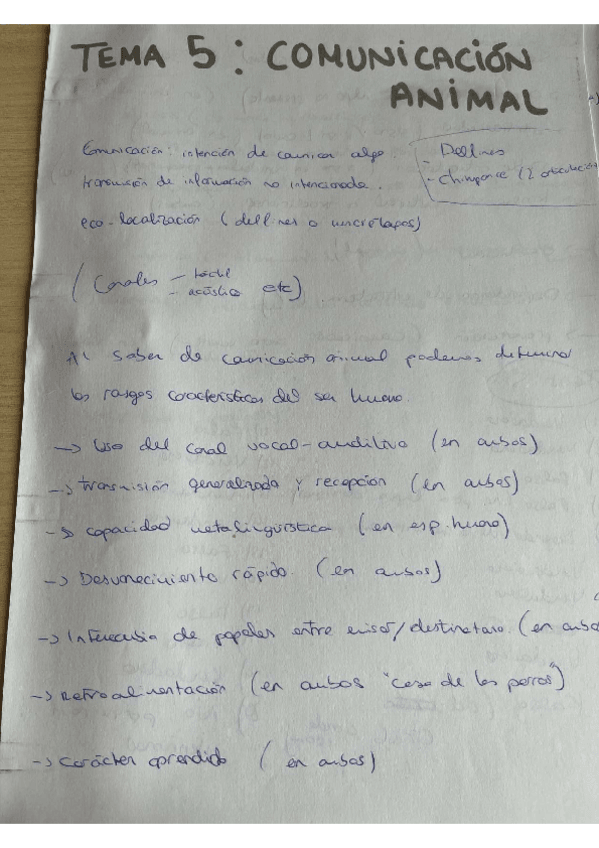 TEMA 5: COMUNICACIÓN
ANIMAL
Comunicación: intención de comunicar algo.
- Delfines
transmisión de información no intencionada.
- chimpance (2 articulación
eco-localización (delfines o murciélagos)
(Canales - táctil
- acústico etc)
Al saber de comunicación animal podemos determinar
los rasgos característicos del ser humano.
→ Uso del canal vocal-auditivo (en ambos)
→ transmisión generalizada y recepción (en ambos)
→ capacidad metalingüística (en esp. humano)
→ Desvanecimiento rápido. (en ambos)
→ Intercambio de papeles entre emisor/destinatario (en ambos
→ retroalimentación (en ambos "caso de los perros")
→ carácter aprendido (en ambos)